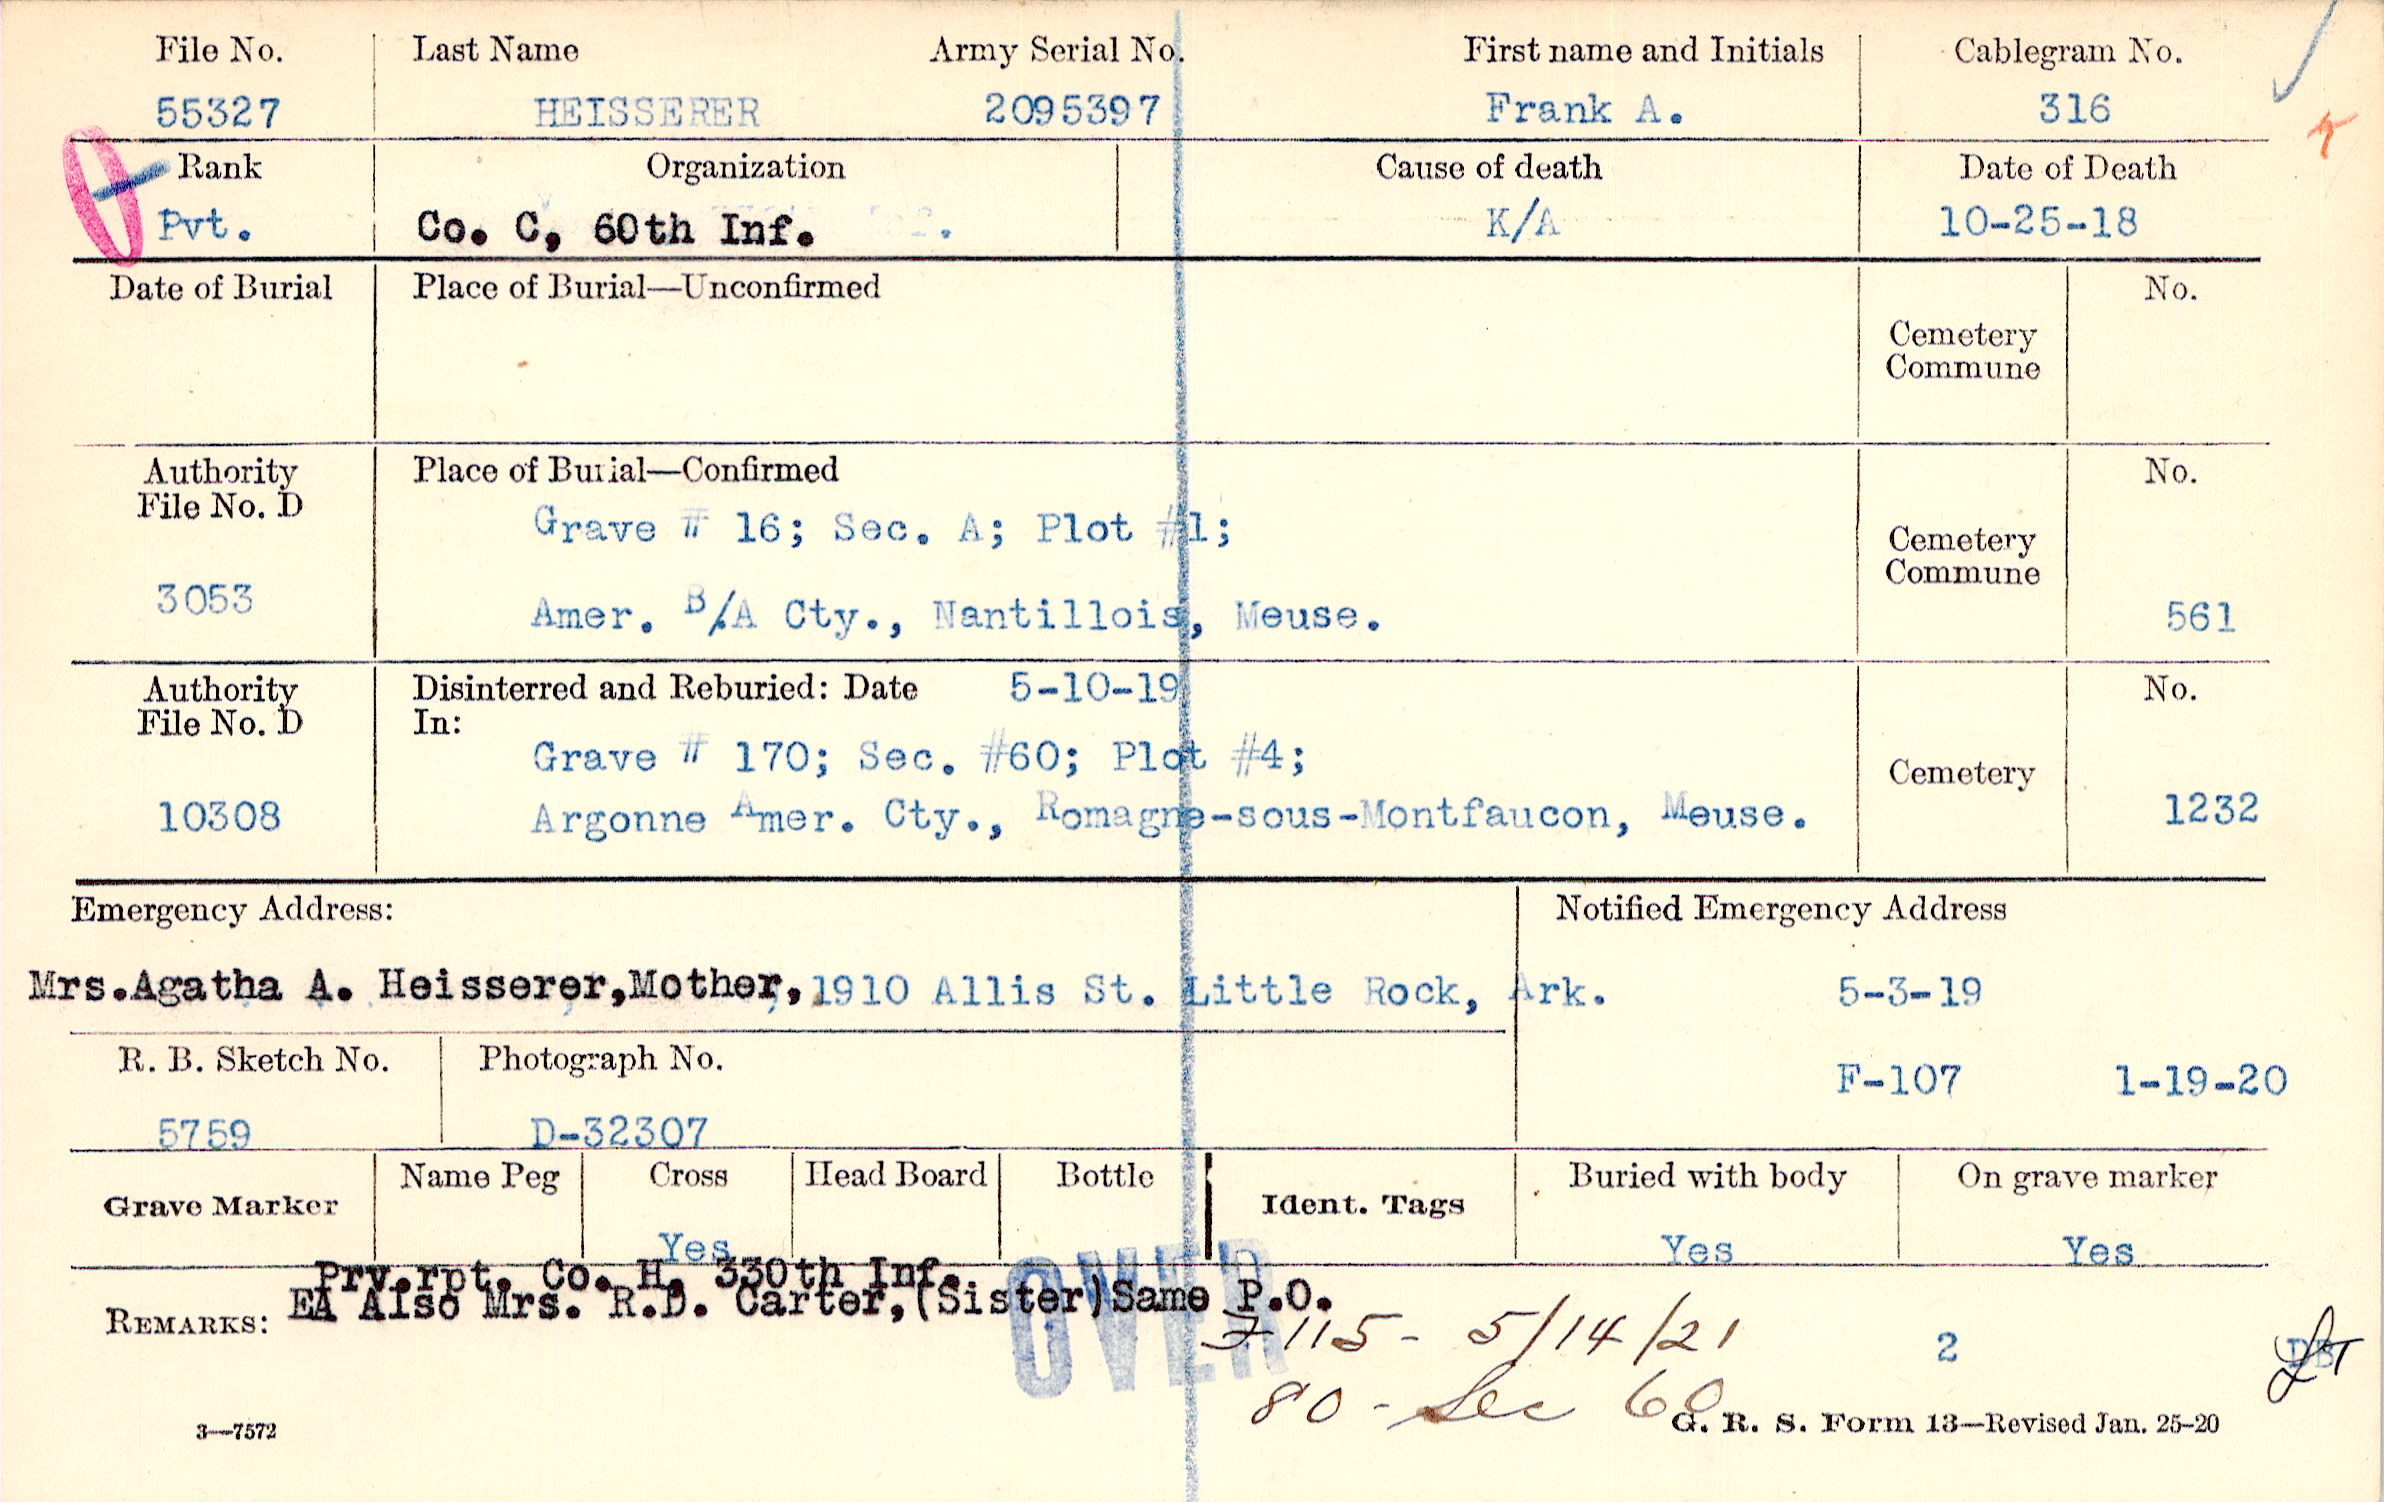 File No. Last Name Army Serial No. First name and Initials Cablegram No.
55327 HEISSERER 2095397 Frank A. 316
Rank Organization Cause of death Date of Death
Pvt. Co. C, 60th Inf. K/A 10-25-18
Date of Burial Place of Burial—Unconfirmed No.
Cemetery
Commune
Authority Place of Burial—Confirmed No.
File No. D
Grave # 16; Sec. A; Plot #1;
Cemetery
Commune
3053
Amer. B/A Cty., Nantillois, Meuse. 561
Authority Disinterred and Reburied: Date 5-10-19 No.
File No. D In:
Grave # 170; Sec. #60; Plot #4;
Cemetery
10308 Argonne Amer. Cty., Romagne-sous-Montfaucon, Meuse. 1232
Emergency Address: Notified Emergency Address
Mrs.Agatha A. Heisserer,Mother,1910 Allis St. Little Rock, Ark. 5-3-19
R. B. Sketch No. Photograph No.
F-107 1-19-20
5759 D-32307
Grave Marker Name Peg Cross Head Board Bottle Ident. Tags Buried with body On grave marker
Yes Yes Yes
Prv.rpt. Co. H, 330th Inf.
EA Also Mrs. R.D. Carter,(Sister)Same P.O.
REMARKS:
OVER
F115- 5/14/21 2
80 - Sec 60
3—7572 G. R. S. Form 13—Revised Jan. 25-20